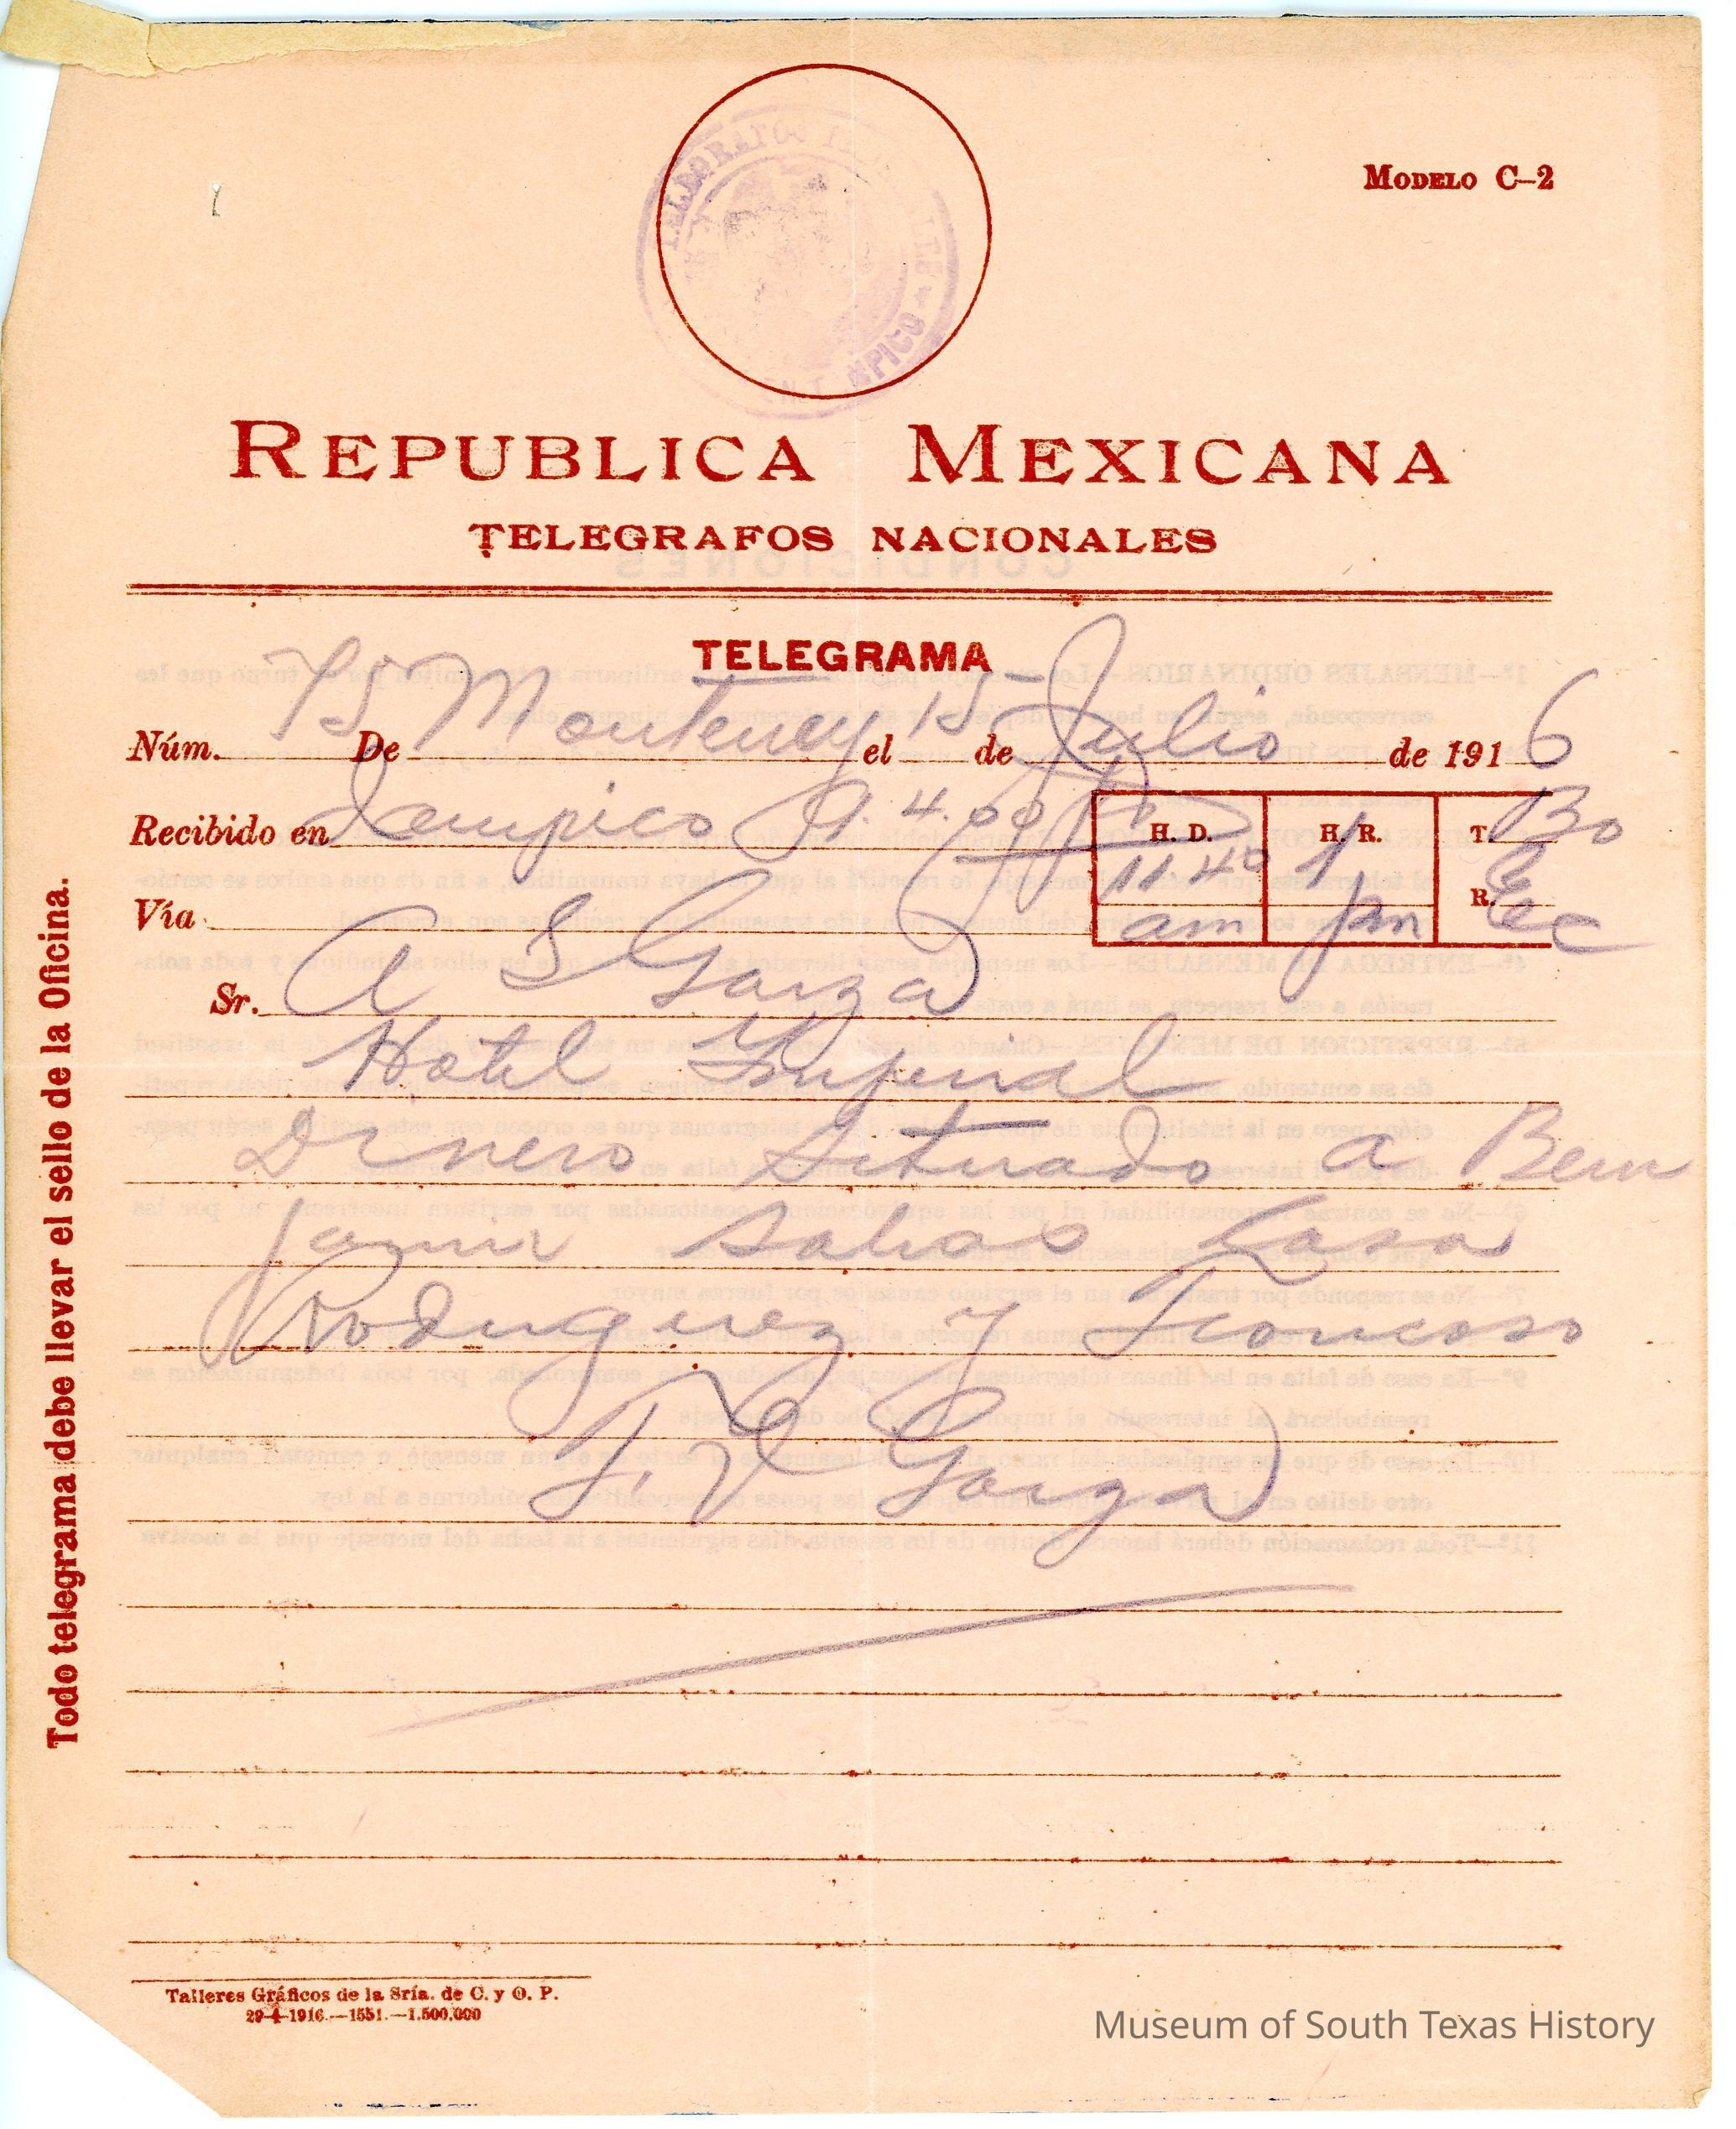 MODELO C-2
REPUBLICA MEXICANA
TELEGRAFOS NACIONALES
TELEGRAMA
Núm. 75 De Monterrey el 15 de Julio de 1916
Recibido en Tampico 4.00
H. D. H. R. T. Bo
11 40 1 R.
am pm
Vía
Sr. A S Garza
Hotel Imperial
Dinero Situado a Ben
jamin Salinas Casa
Rodriguez y Troncoso
T. V Garza
Todo telegrama debe llevar el sello de la Oficina.
Talleres Gráficos de la Sría. de C. y O. P.
29-4-1916.—1551.—1.500,000
Museum of South Texas History